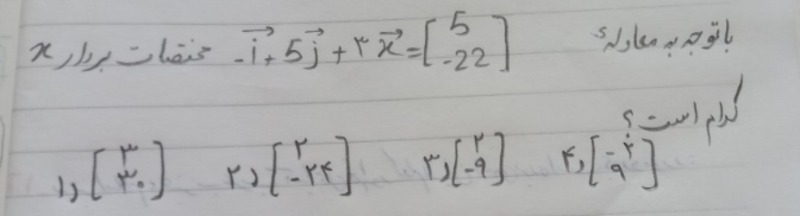 با توجه به معادلهٔ -i⃗ + 5j⃗ + ۳x⃗ = [5 -22] مختصات بردار x
کدام است؟
۱) [۳ ۳۰] ۲) [۲ -۲۴] ۳) [۲ -۹] ۴) [-۲ ۹]